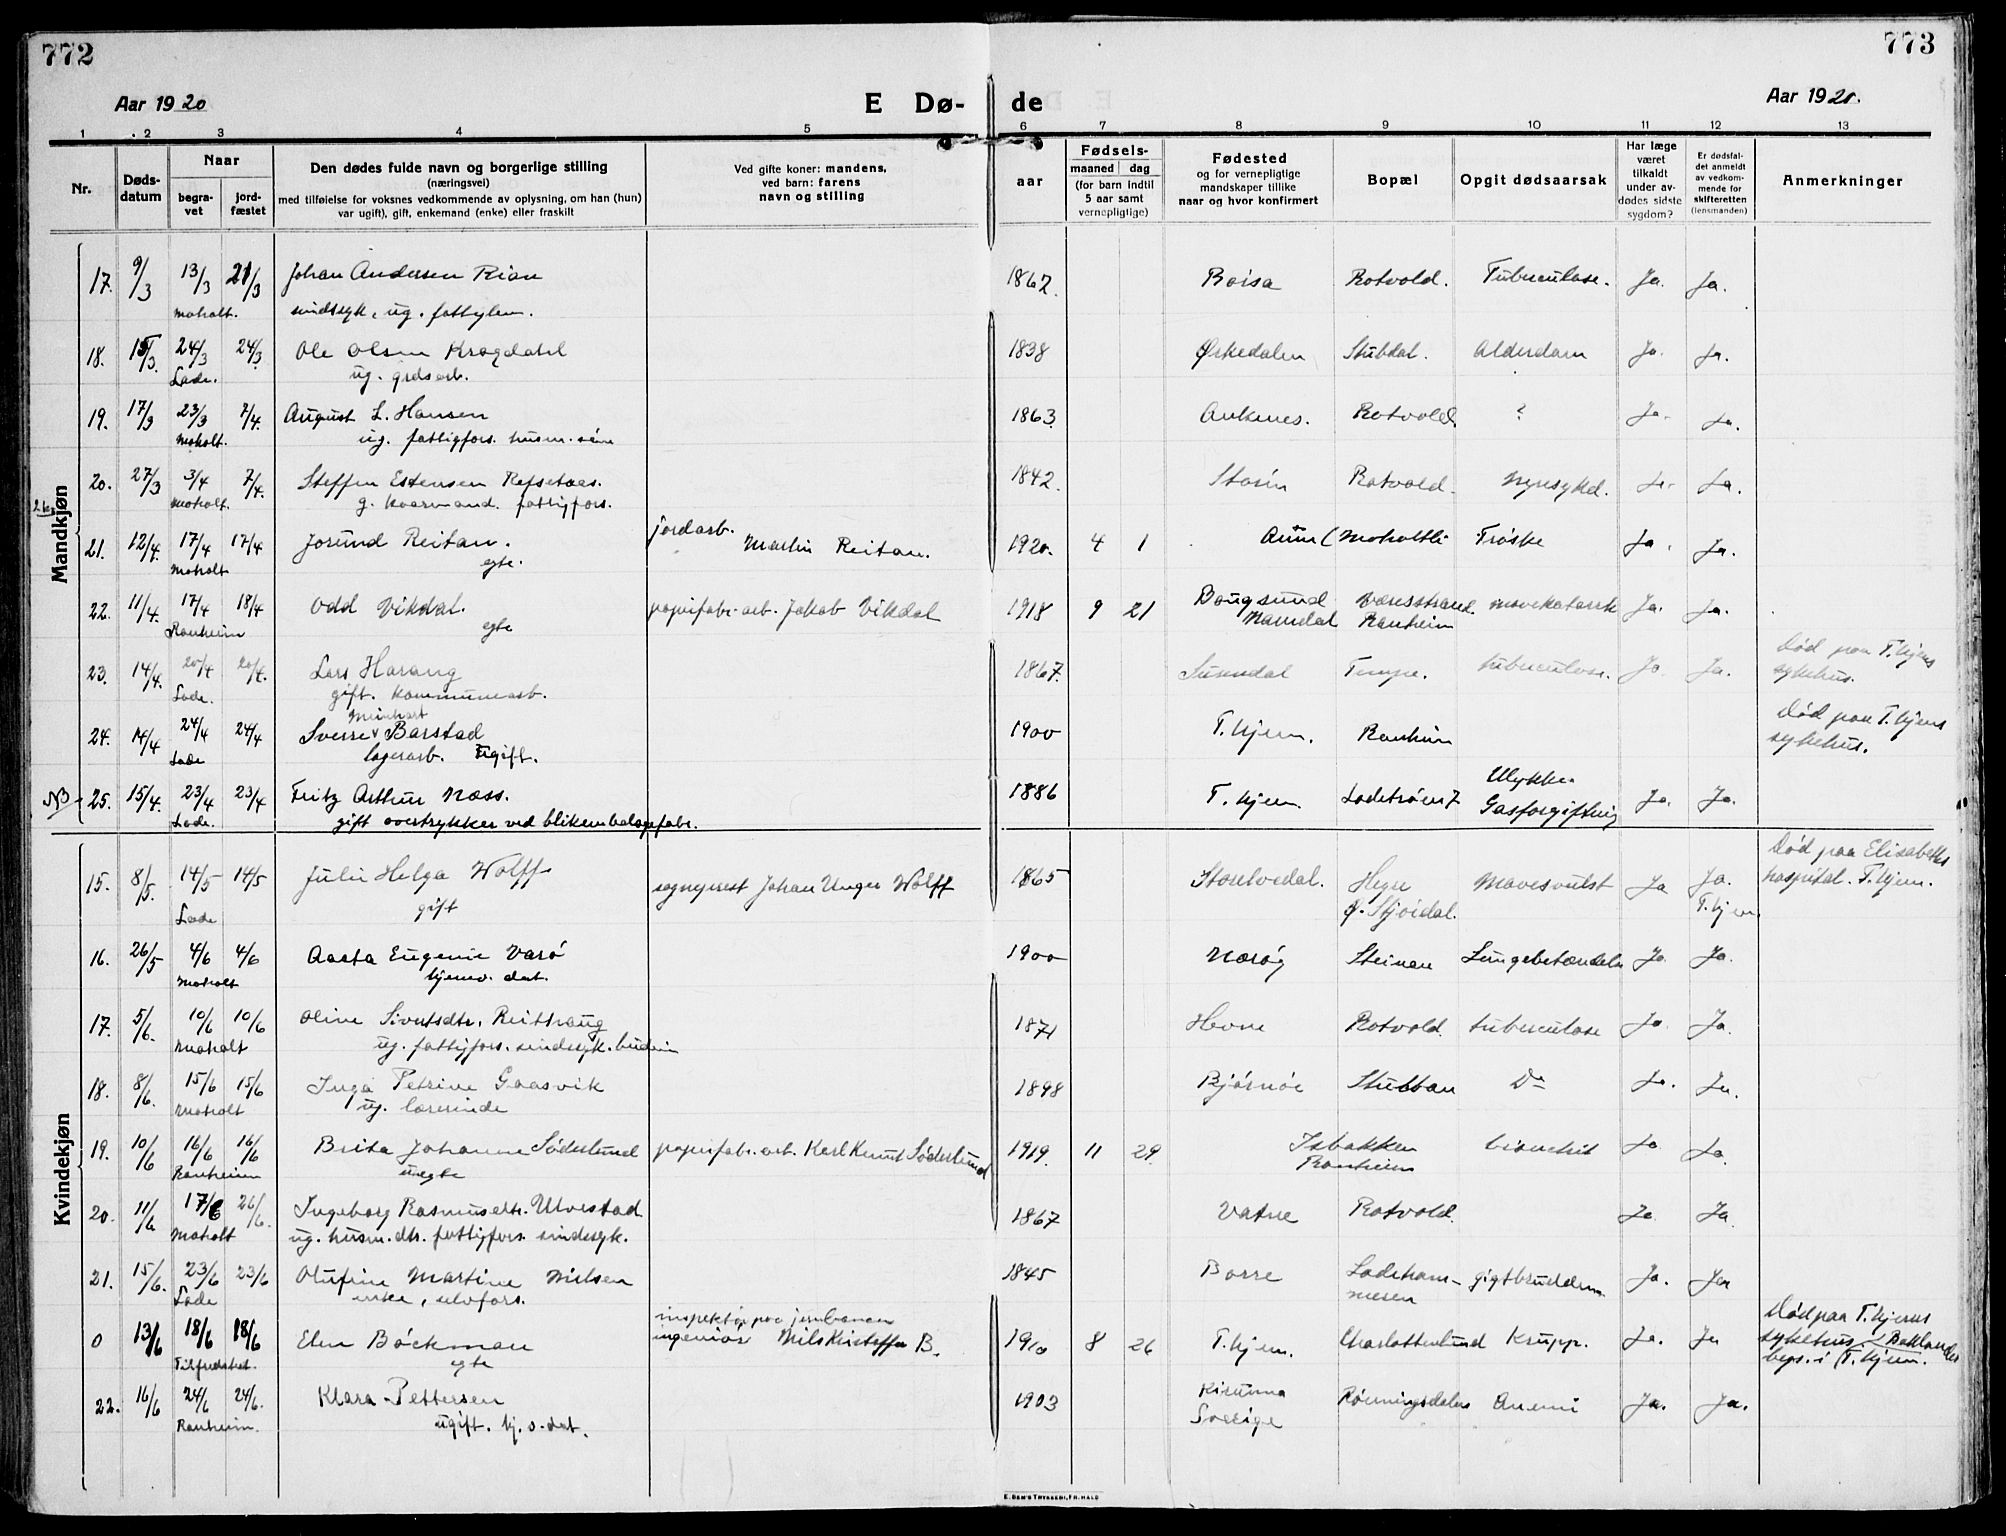 772
773
Aar 1920
E Dø-
de
Aar 1920.
1 2 3 4 5 6 7 8 9 10 11 12 13
Nr.
Døds-
datum
Naar
begra-
vet
jord-
fæstet
Den dødes fulde navn og borgerlige stilling
(næringsvei)
med tilføielse for voksnes vedkommende av oplysning, om han (hun)
var ugift), gift, enkemand (enke) eller fraskilt
Ved gifte koner: mandens,
ved barn: farens
navn og stilling
aar
Fødsels-
maaned dag
(for barn indtil
5 aar samt
vernepligtige)
Fødested
og for vernepligtige
mandskaper tillike
naar og hvor konfirmert
Bopæl
Opgit dødsaarsak
Har læge
været
tilkaldt
under av-
dødes sidste
sygdom?
Er dødsfal-
det anmeldt
av vedkom-
mende for
skifteretten
(lensmanden)
Anmerkninger
Mandkjøn
17. 9/3 13/3 21/3 Johan Andersen Rian 1862. Boisa Rotvold. Tuberculose. Ja. Ja.
Moholt. sindssyk, ug. fattiglem.
18. 15/3. 24/3 24/3 Ole Olsen Krogdahl 1838 Ørkedalen Stubdal. Alderdom Ja. Ja.
Lade. ug. grdsarb.
19. 17/3 23/3 7/4. August L. Hansen 1863. Ankenes. Rotvold ? Ja. Ja.
Moholt. ug. fattigfors. husm. søn
20. 27/3 3/4 7/4. Steffen Estensen Refsetaas. 1842. Støren Rotvold. Nyresykd. Ja. Ja.
Moholt. g. kaarmand. fattigfors.
21. 12/4. 17/4 17/4 Jorund Reitan. jordarb. Martin Reitan. 1920. 4 1 Moholtli Trøske Ja. Ja.
Moholt egte.
22. 11/4. 17/4 18/4 Odd Vikdal. papirfabr. arb. Jakob Vikdal 1918 9 21 Bangsund Været­strand. Mavekatarrh Ja. Ja.
Ranheim egte Namdal Ranheim
23. 14/4. 20/4 20/4. Lars Harang 1867. Surendal Tempe. tuberculose. Ja. Ja. Død paa T.hjems
Lade. gift. kommunearb. sykehus.
Meinhart
24. 14/4 24/4 24/4 Sverre Barstad 1900 T.hjem. Ranheim Død paa T.hjems
Lade lagerarb. Ugift. sykehus.
NB 25. 15/4. 23/4 23/4 Fritz Arthur Næss. 1886 T.hjem. Ladetrøen 7 Ulykke. Ja. Ja.
Lade. gift overtrykker ved blikembalagefabr. Gasforgiftning
Kvindekjøn
15. 8/5. 14/5 14/5 Julie Helga Wolff sogneprest Johan Unger Wolff 1865 Storelvedal. Hegre Mavesvulst Ja Ja. Død paa Elisabeths
Lade gift Ø. Stjørdal. T.hjem hospital. T.hjem.
16. 26/5 4/6 4/6 Aasta Eugenie Varø 1900 Nærøy Steinan Lungebetændelse Ja. Ja.
Moholt hjemv. dat.
17. 5/6. 10/6 10/6 Oline Sivertsdtr. Reithaug 1871 Hevne Rotvold tuberculose Ja. Ja.
Moholt ug. fattigfors. sindssyk. budeie
18. 8/6. 15/6 15/6 Inga Petrine Gaasvik 1898 Bjørnør Stubban Do Ja. Ja.
Moholt ug. lærerinde
19. 10/6 16/6 16/6 Brita Johanne Söderlund papirfabr. arb. Karl Knut Söderlund 1919. 11 29. Isbakken bronchit Ja Ja.
Ranheim uegte Ranheim
20. 11/6 17/6 26/6. Ingeborg Rasmusdtr. Ulvestad 1867 Vatne Rotvold. Ja Ja.
Moholt ug. husm. dtr. fattigfors. sindssyk.
21. 15/6. 23/6 23/6 Olufine Martine Nielsen 1845 Borre Ladeham- gigtbrudden Ja. Ja
Lade enke, selvfors. meren
inspektør paa jernbanen
0 13/6 18/6 18/6 Elen Böckman ingeniør Nils Kristoffer B. 1910 8 26 T.hjem. Charlottenlund Krupp. Ja. Ja Død paa T.hjems
Tilfredshet. egte sykehus, Baklandet
begr. i T.hjem.
22. 16/6 24/6 24/6. Klara Pettersen 1903 Kiruna Rönningsdalen Anemi Ja. Ja.
Ranheim. ugift. hj. v. dat. Sverige
E. SEM'S TRYKKERI, FR.HALD